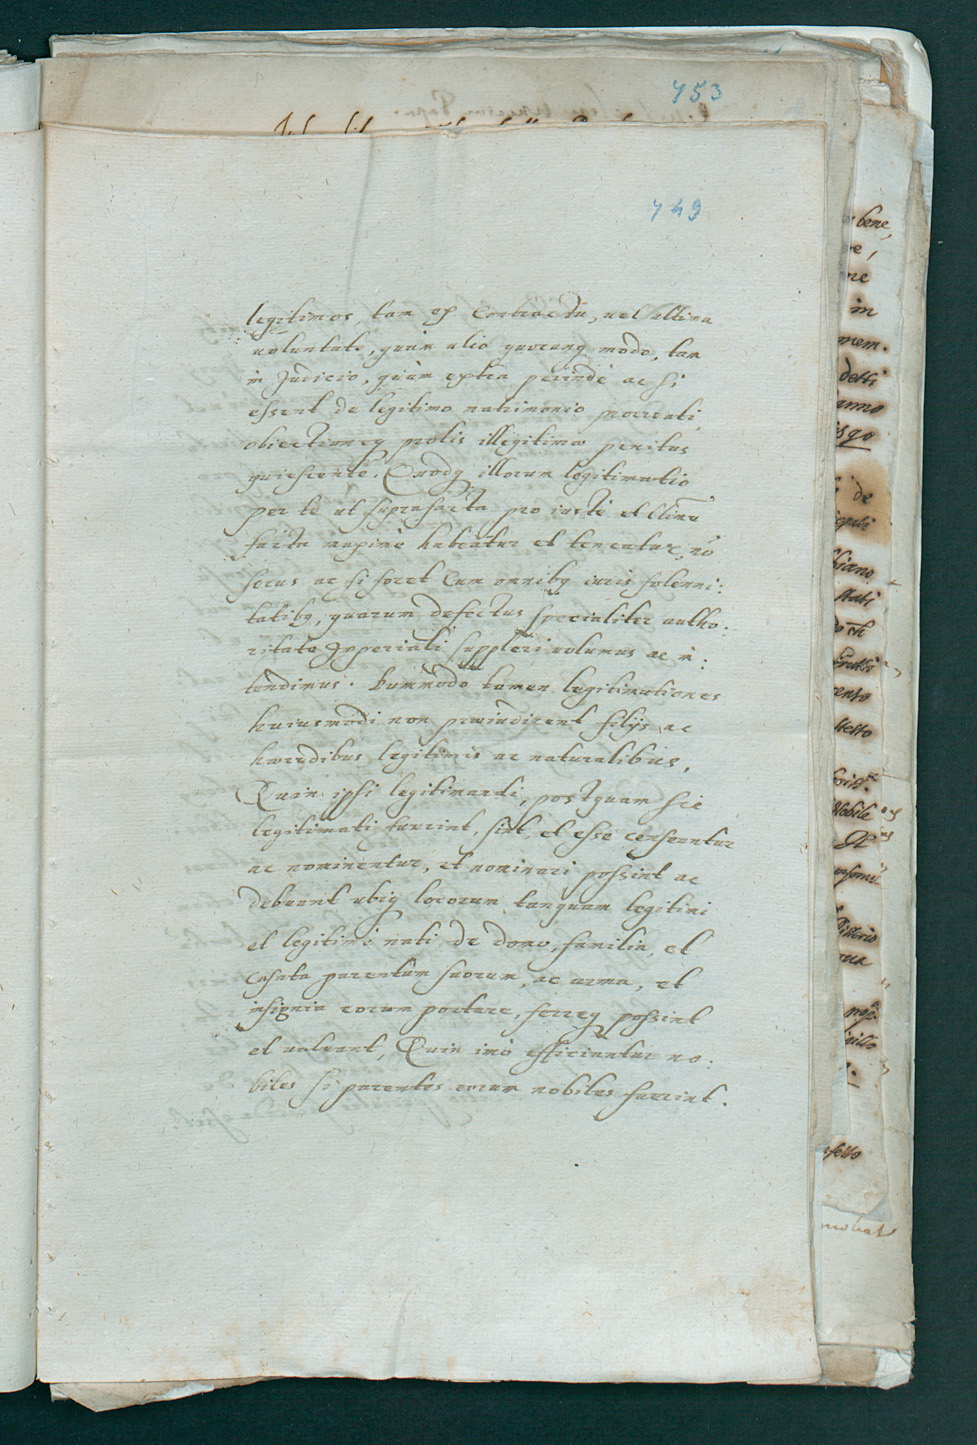 753
749
legitimos, tam ex Contractu, uel ultima
uoluntate, quàm alio quocunq modo, tam
in Judicio, quàm extra perinde ac si
essent de legitimo matrimonio procreati,
obiectioneq prolis illegitimae penitus
quiescente. Quodq illorum legitimatio
per te ut supra facta pro iustè et
facta maximè habeatur et teneatur nõ
secus ac si foret Cum omnibq iuris solenni:
tatibq, quarum defectus specialiter autho:
ritate Imperiali suppleri uolumus ac in:
tendimus. Dummodo tamen legitimationes
huiusmodi non praeiudicent filijs ac
haeredibus legitimis ac naturalibus,
Quin ipsi legitimandi, postquam sic
legitimati fuerint, sint, et esse censeantur
ac nominentur, et nominari possint ac
debeant ubiq locorum tanquam legitimi
et legitimè nati de domo, familia, et
casata parentum suorum, ac arma, et
insignia eorum portare, ferreq possint
et ualeant, Quin imò efficiantur no:
biles si parentes eorum nobiles fuerint.
bene,
in
mem.
detti
anno
de
hiano
stati
cento
detto
Nobile